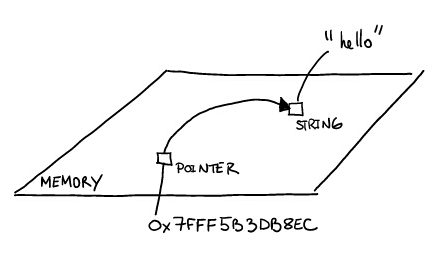 "hello"
STRING
POINTER
MEMORY
0x7FFF5B3DB8EC